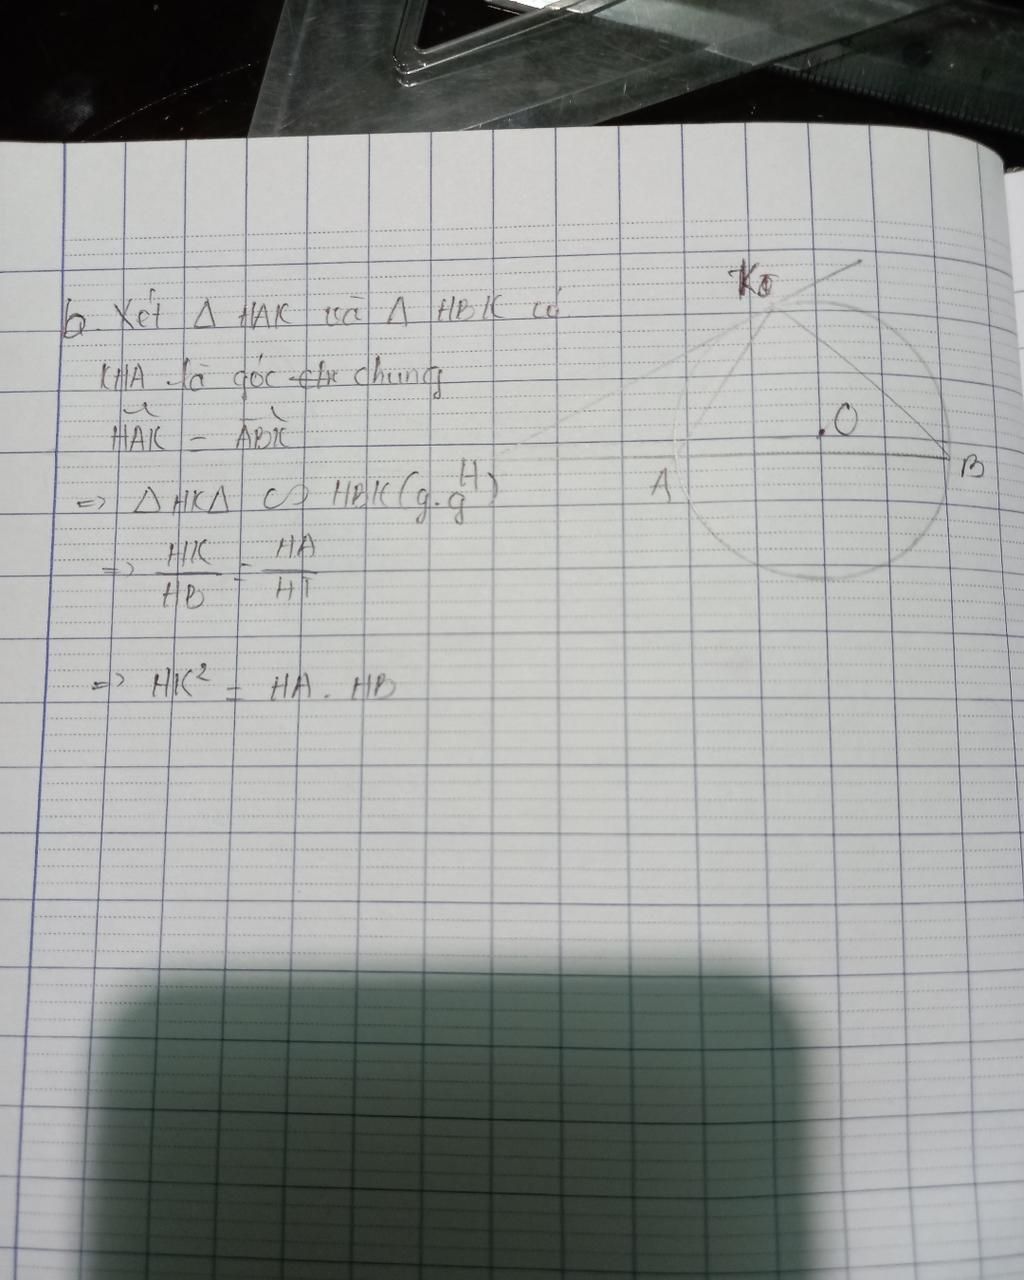 b. Xét Δ HAK và Δ HBK có
KHA là góc chung
HAK = ABK
=> Δ HKA ∽ HBK (g.g)
=> HK/HB = HA/HT
=> HK² = HA . HB
K
O
A
B
H